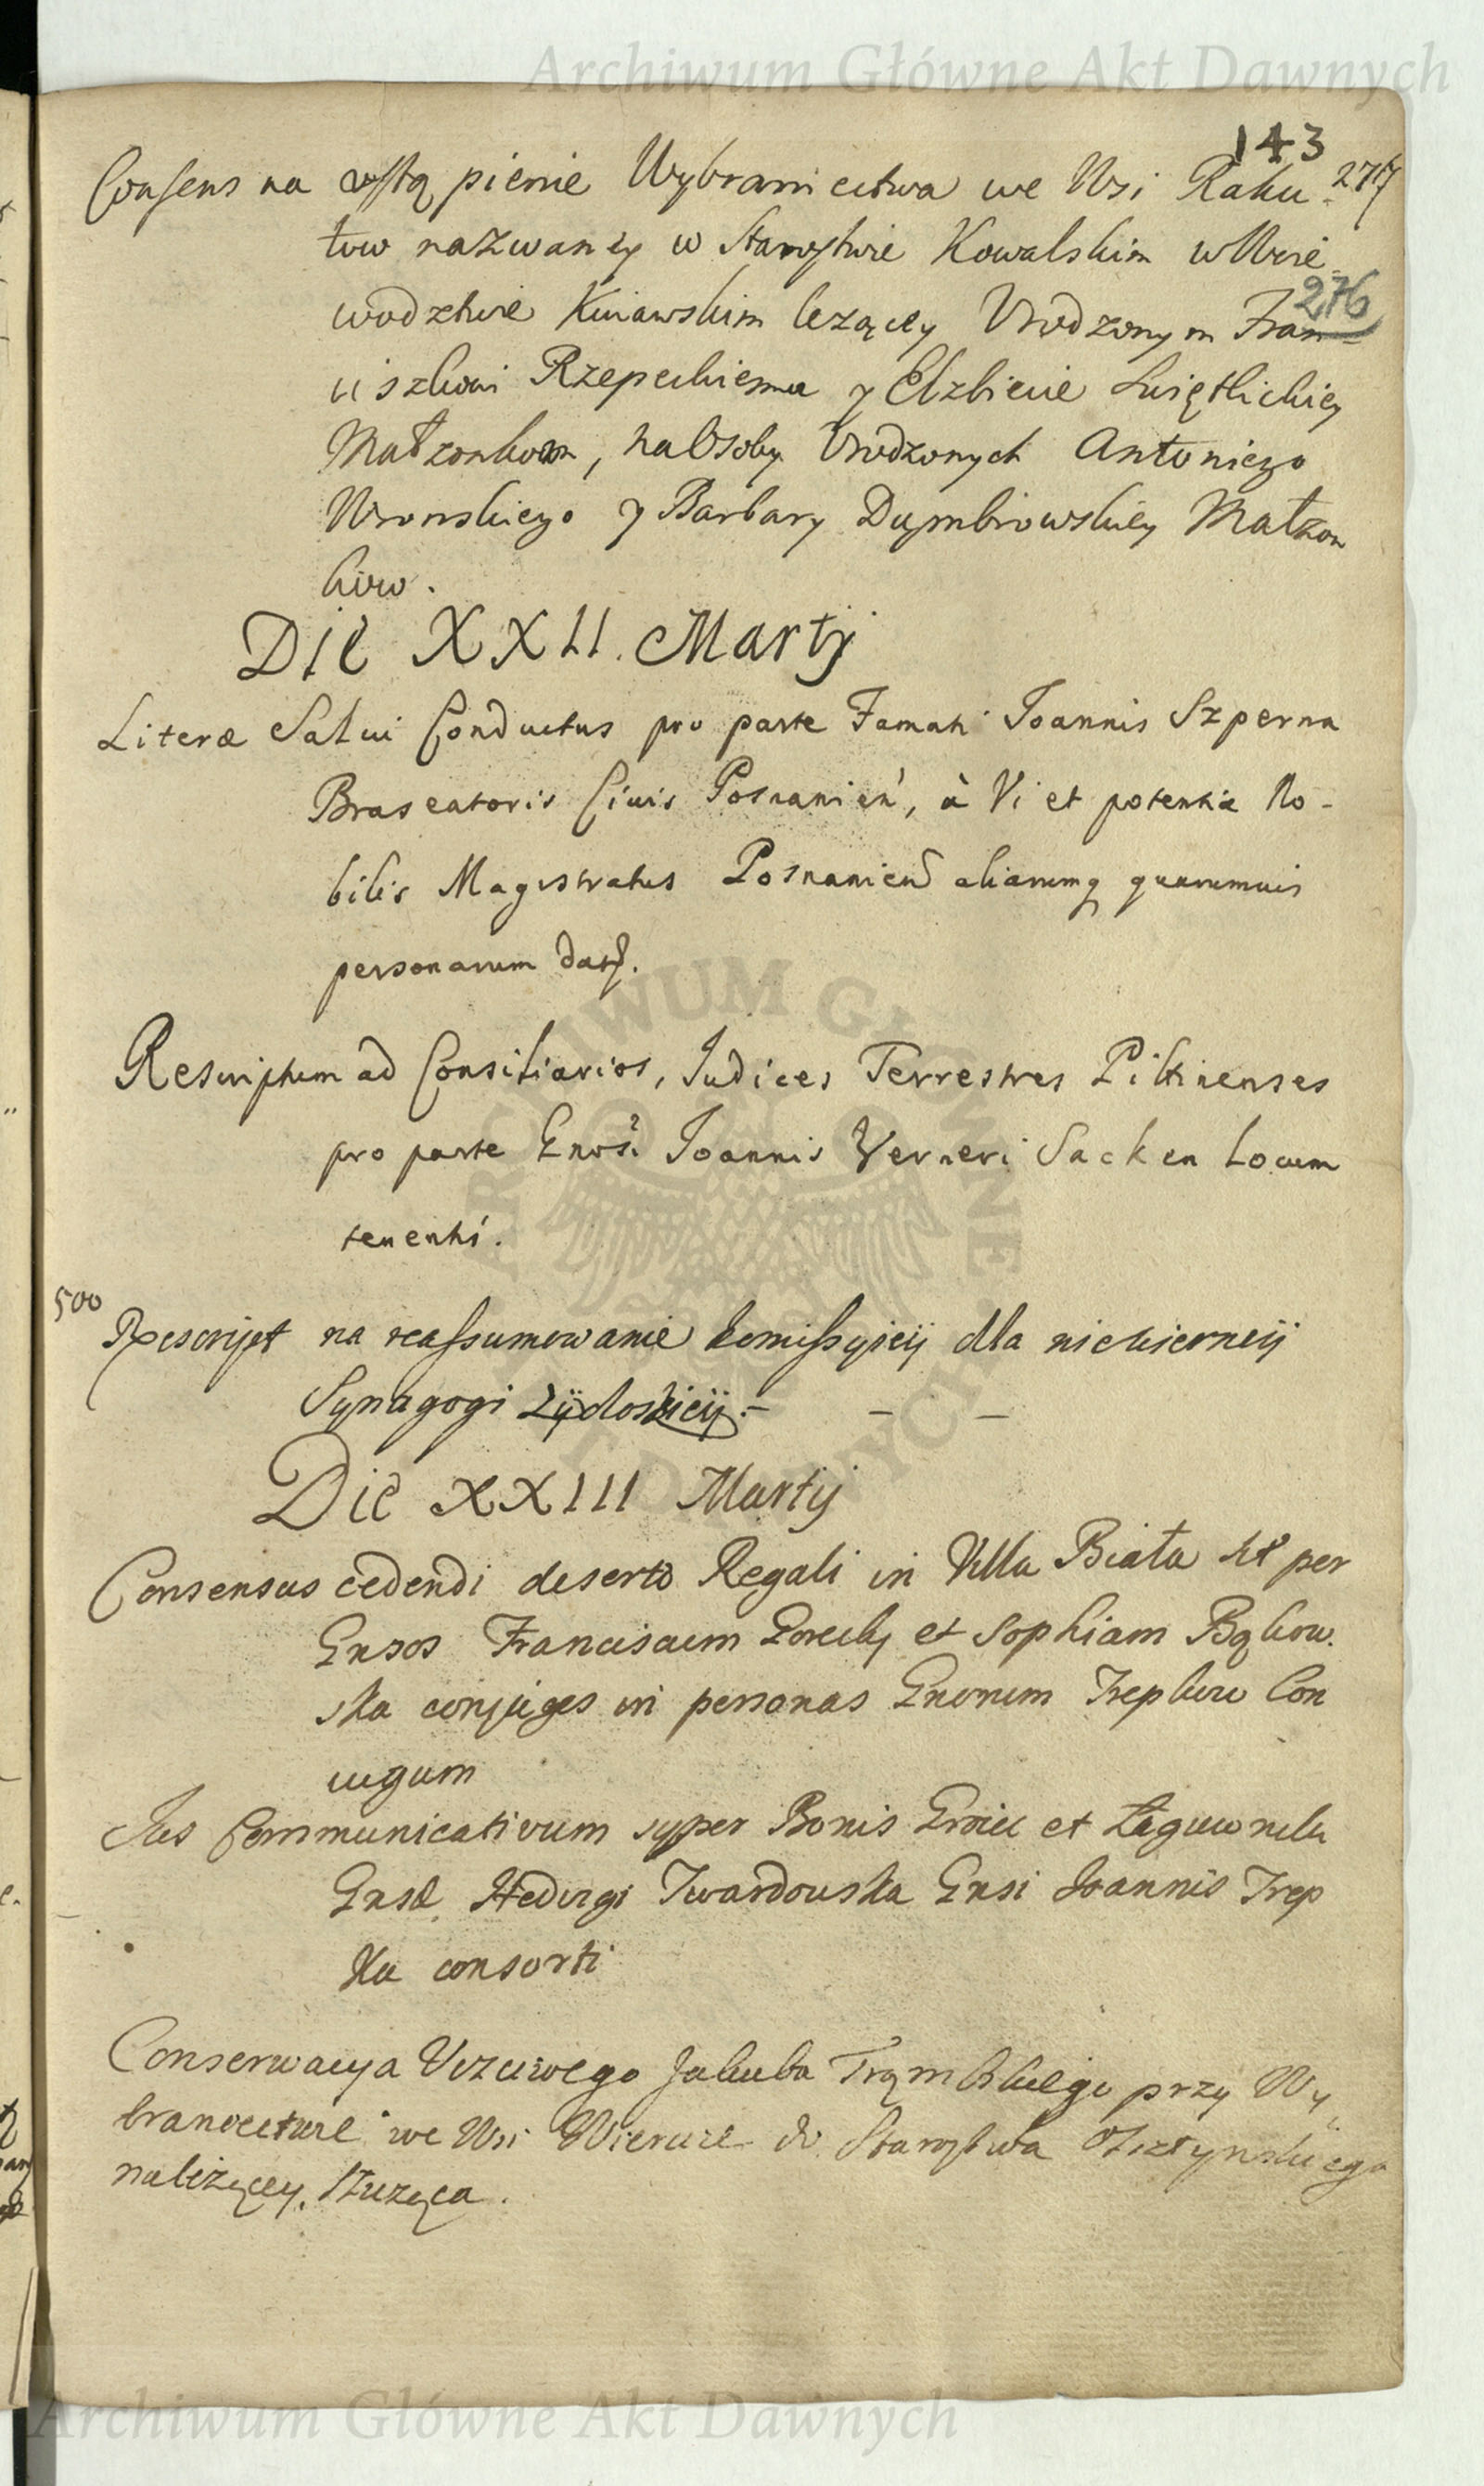 Archiwum Główne Akt Dawnych
143
Consens na ustą pienie Wybraniectwa we Wsi Raku- 277
tow nazwaney w Starostwie Kowalskim w Woie-
276
wodztwie Kuiawskim lezącey Urodzonym Fran=
ciszkowi Rzepeckiemu y Elzbiecie Swiętlickiey
Małzonkom, na Osoby Urodzonych Antoniego
Wronskiego y Barbary Dąmbrowskiey Małzon
kow.
Die XXII. Martij
Literæ Salui Conductus pro parte Famati Joannis Szperna
Braseatoris Civis Posnanień, à Vi et potentia No-
bilis Magistratus Posnanien aliarumq quarumuis
personarum
Rescriptum ad Consiliarios, Judices Terrestres Piltinenses
pro parte Gnosi Joannis Verneri Sacken Locum
tenentis.
500
Rescrijpt na reassumowanie komissyieij dla niewierneij
Synagogi Zÿdoskieij. — — —
Die XXIII Martij
Consensus cedendi deserto Regali in Villa Biała per
Gnsos Franciscum et Sophiam Bąkow.
ska conjuges in personas Gnorum Trepkow Con
iugum
Jus Communicativum super Bonis et
Gnsæ Hedvigi Twardouska Gnsi Joannis Trep
Ka consorti
Conserwacya Uczciwego Jakuba Trąmbskiego przy Wy,
branoectwie we Wsi Wierucie do Starostwa Olsztynskiego
nalezącey, służąca.
ARCHIWUM GŁÓWNE AKT DAWNYCH
Archiwum Główne Akt Dawnych